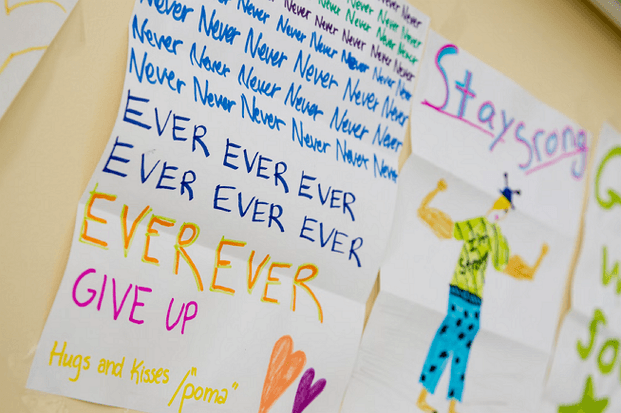 Never Never Never Never
Never Never Never Never
Never Never Never Never Never
Never Never Never Never Never Never
Never Never Never Never Never Never
Never Never Never Never Never Never
EVER EVER EVER
EVER EVER EVER
EVER EVER
GIVE UP
Hugs and Kisses /"poma"
Stay srong